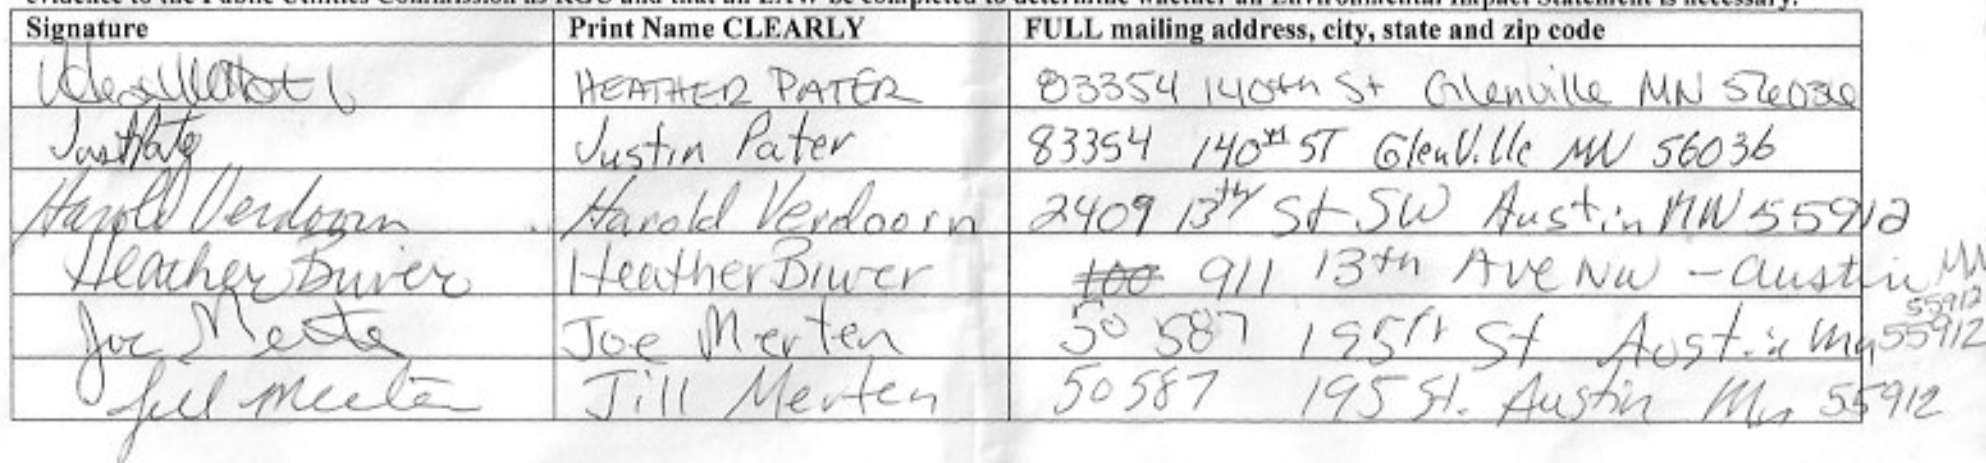 evidence to the Public Utilities Commission as RGU and that an EAW be completed to determine whether an Environmental Impact Statement is necessary.
Signature Print Name CLEARLY FULL mailing address, city, state and zip code
HEATHER PATER 83354 140th St Glenville MN 56036
Justin Pater 83354 140th ST Glenville MN 56036
Harold Verdoorn Harold Verdoorn 2409 13th St SW Austin MN 55912
Heather Biwer Heather Biwer 100 911 13th Ave NW - Austin MN
55912
Joe Merten Joe Merten 50 587 195th St Austin Mn 55912
Jill Merten Jill Merten 50587 195 St. Austin Mn 55912